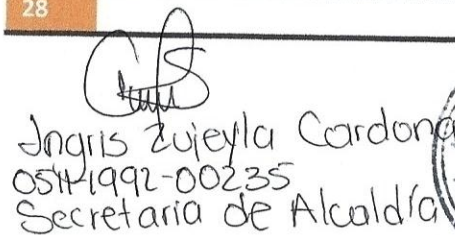 28
Ingris Zujeyla Cardona
0511-1992-00235
Secretaria de Alcaldía